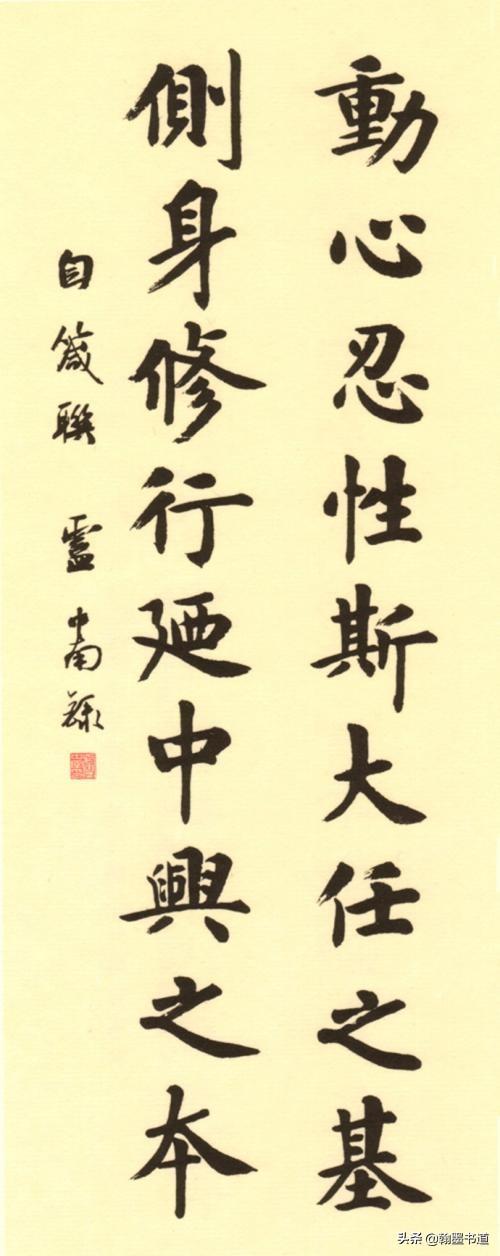 動心忍性斯大任之基
側身修行廼中興之本
自箴聯 盧中南錄
头条 @翰墨书道